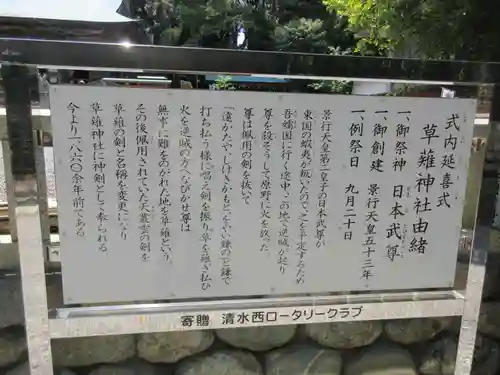 式内延喜式
草薙神社由緒
一、御祭神 日本武尊
一、御創建 景行天皇五十三年
一、例祭日 九月二十日
景行天皇第二皇子の日本武尊が
東国の蝦夷が叛いたので之を平定するため
吾嬬国に行く途中、この地で逆賊が起り
尊を殺そうして原野に火を放った
尊は佩用の剣を抜いて
「遠かたや、しげきかもと、をやい鎌の」と鎌で
打ち払う様に唱え剣を振り草を薙ぎ払ひ
火を逆賊の方へなびかせ尊は
無事に難をのがれた地を草薙という。
その後佩用されていた天叢雲の剣を
草薙の剣と名稱を変更になり
草薙神社に神剣として奉られる
今より一八六〇余年前である
寄贈 清水西ロータリークラブ